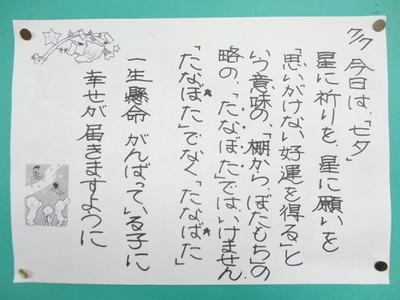 7/7 今日は、「七夕」
星に祈りを、星に願いを
「思いがけない好運を得る」と
いう意味の、「棚から、ぼたもち」の
略の、「たなぼた」ではいけません
「たなぼた」でなく「たなばた」
一生懸命 がんばっている子に
幸せが届きますように